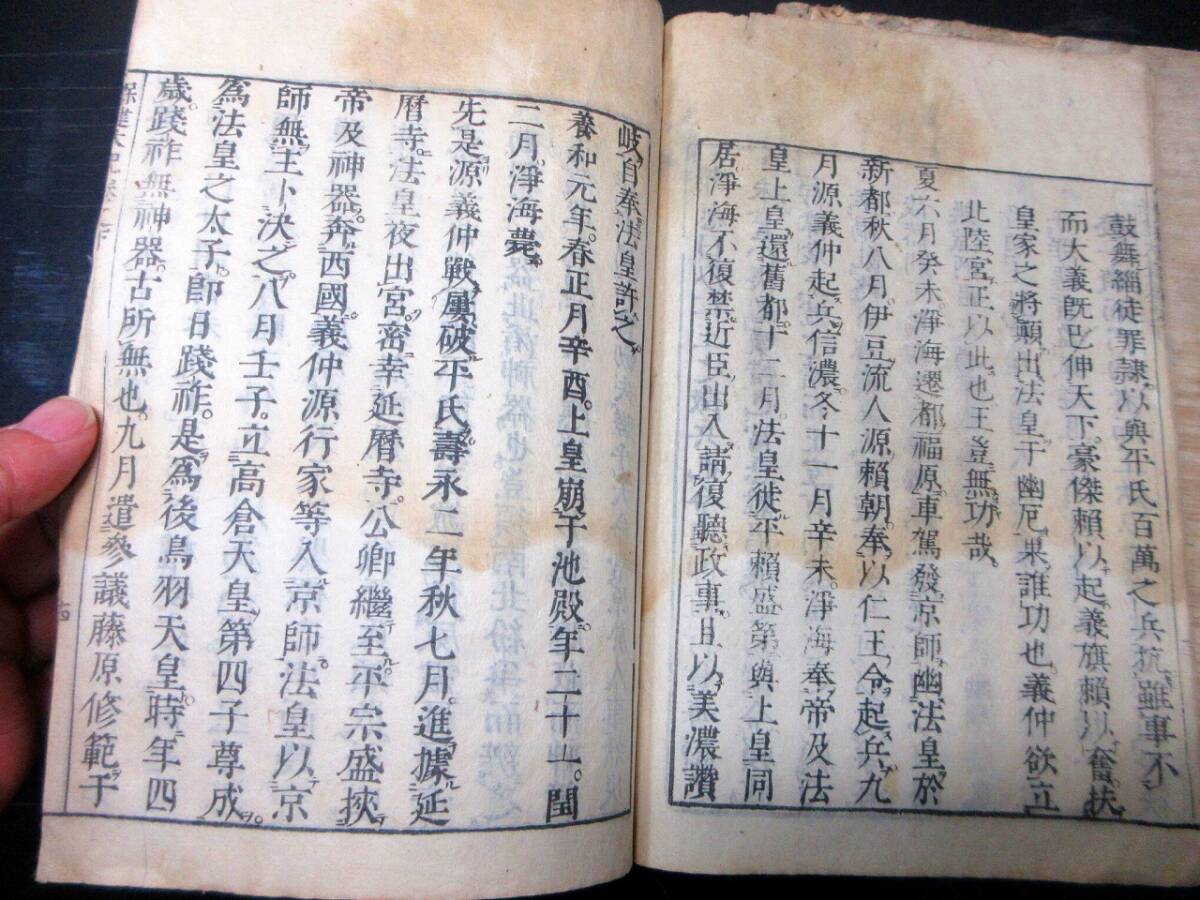 鼓舞緇徒罪隷。以與平氏百萬之兵抗。雖事不
而大義既已伸天下。豪傑賴以起義旗賴以奮扶
皇家之將顛出法皇于幽厄果誰功也。義仲欲立
北陸宮正以此也王豈無功哉。
夏六月癸未。淨海遷都福原車駕發京師幽法皇於
新都秋八月。伊豆流人源賴朝。奉以仁王令起兵九
月源義仲起兵信濃。冬十一月辛未。淨海奉帝及法
皇上皇還舊都。十二月。法皇徙平賴盛第與上皇同
居。淨海不復禁。近臣出入請復聽政事。且以美濃讚
岐自奉法皇許之。
養和元年。春正月辛酉。上皇崩于池殿。年二十一。閏
二月。淨海薨。
先是源義仲戰屢破平氏壽永二年秋七月。進據延
曆寺。法皇夜出宮密幸延曆寺。公卿繼至。平宗盛挾
帝及神器。奔西國。義仲源行家等入京師法皇以京
師無主卜決之。八月壬子。立高倉天皇第四子尊成。
為法皇之太子。即日踐祚。是為後鳥羽天皇。時年四
歲。踐祚無神器。古所無也。九月遣參議藤原修範于
保建大記卷之下
十四